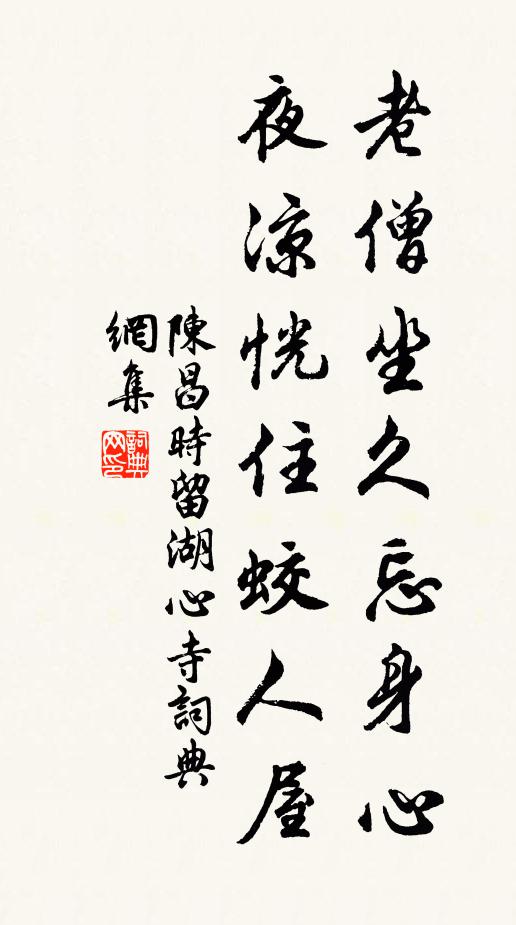 老僧坐久忘身心
夜涼恍住蛟人屋
陳昌時留湖心寺詞典
網集
詞典网印